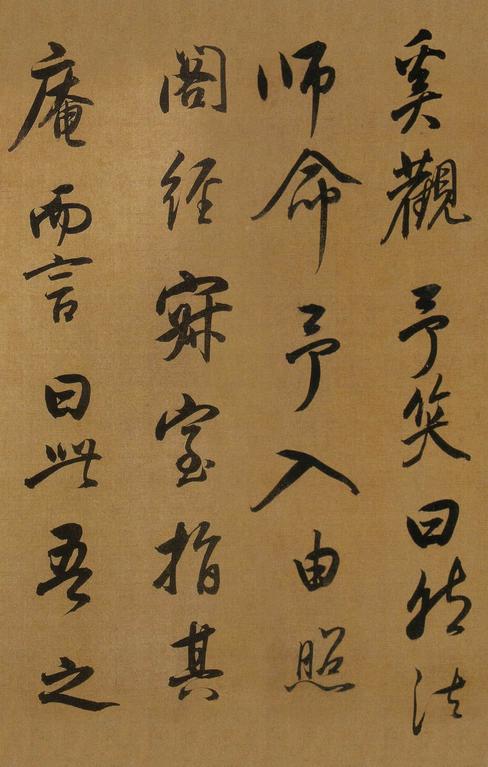 奚觀予笑曰然法
師命予入由照
閣經寂室指其
庵而言曰此吾之